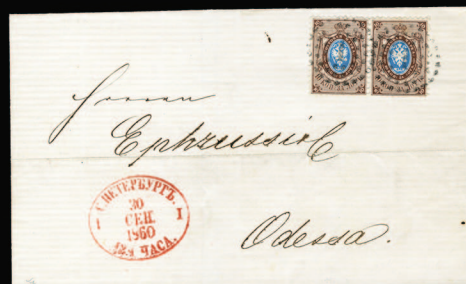 Herren
Ephrussi & C
Odessa.
С. ПЕТЕРБУРГЪ.
1 1
30
СЕН.
1860
ЧАСА.